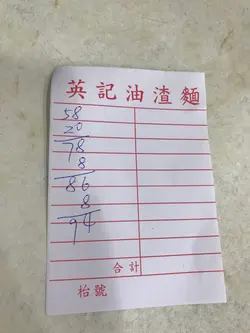 英記油渣麵
58
20
78
8
86
8
94
合計
枱號